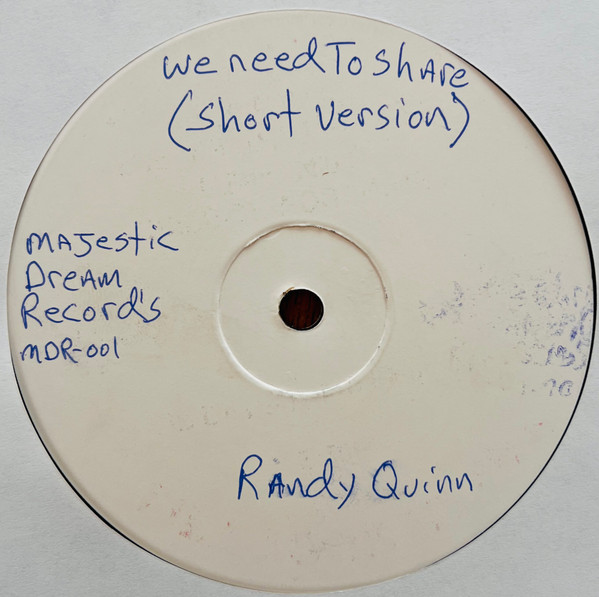 we need To ShAre
(Short Version)
MAJestic
DreAM
Record's
MDR-001
RAndy Quinn